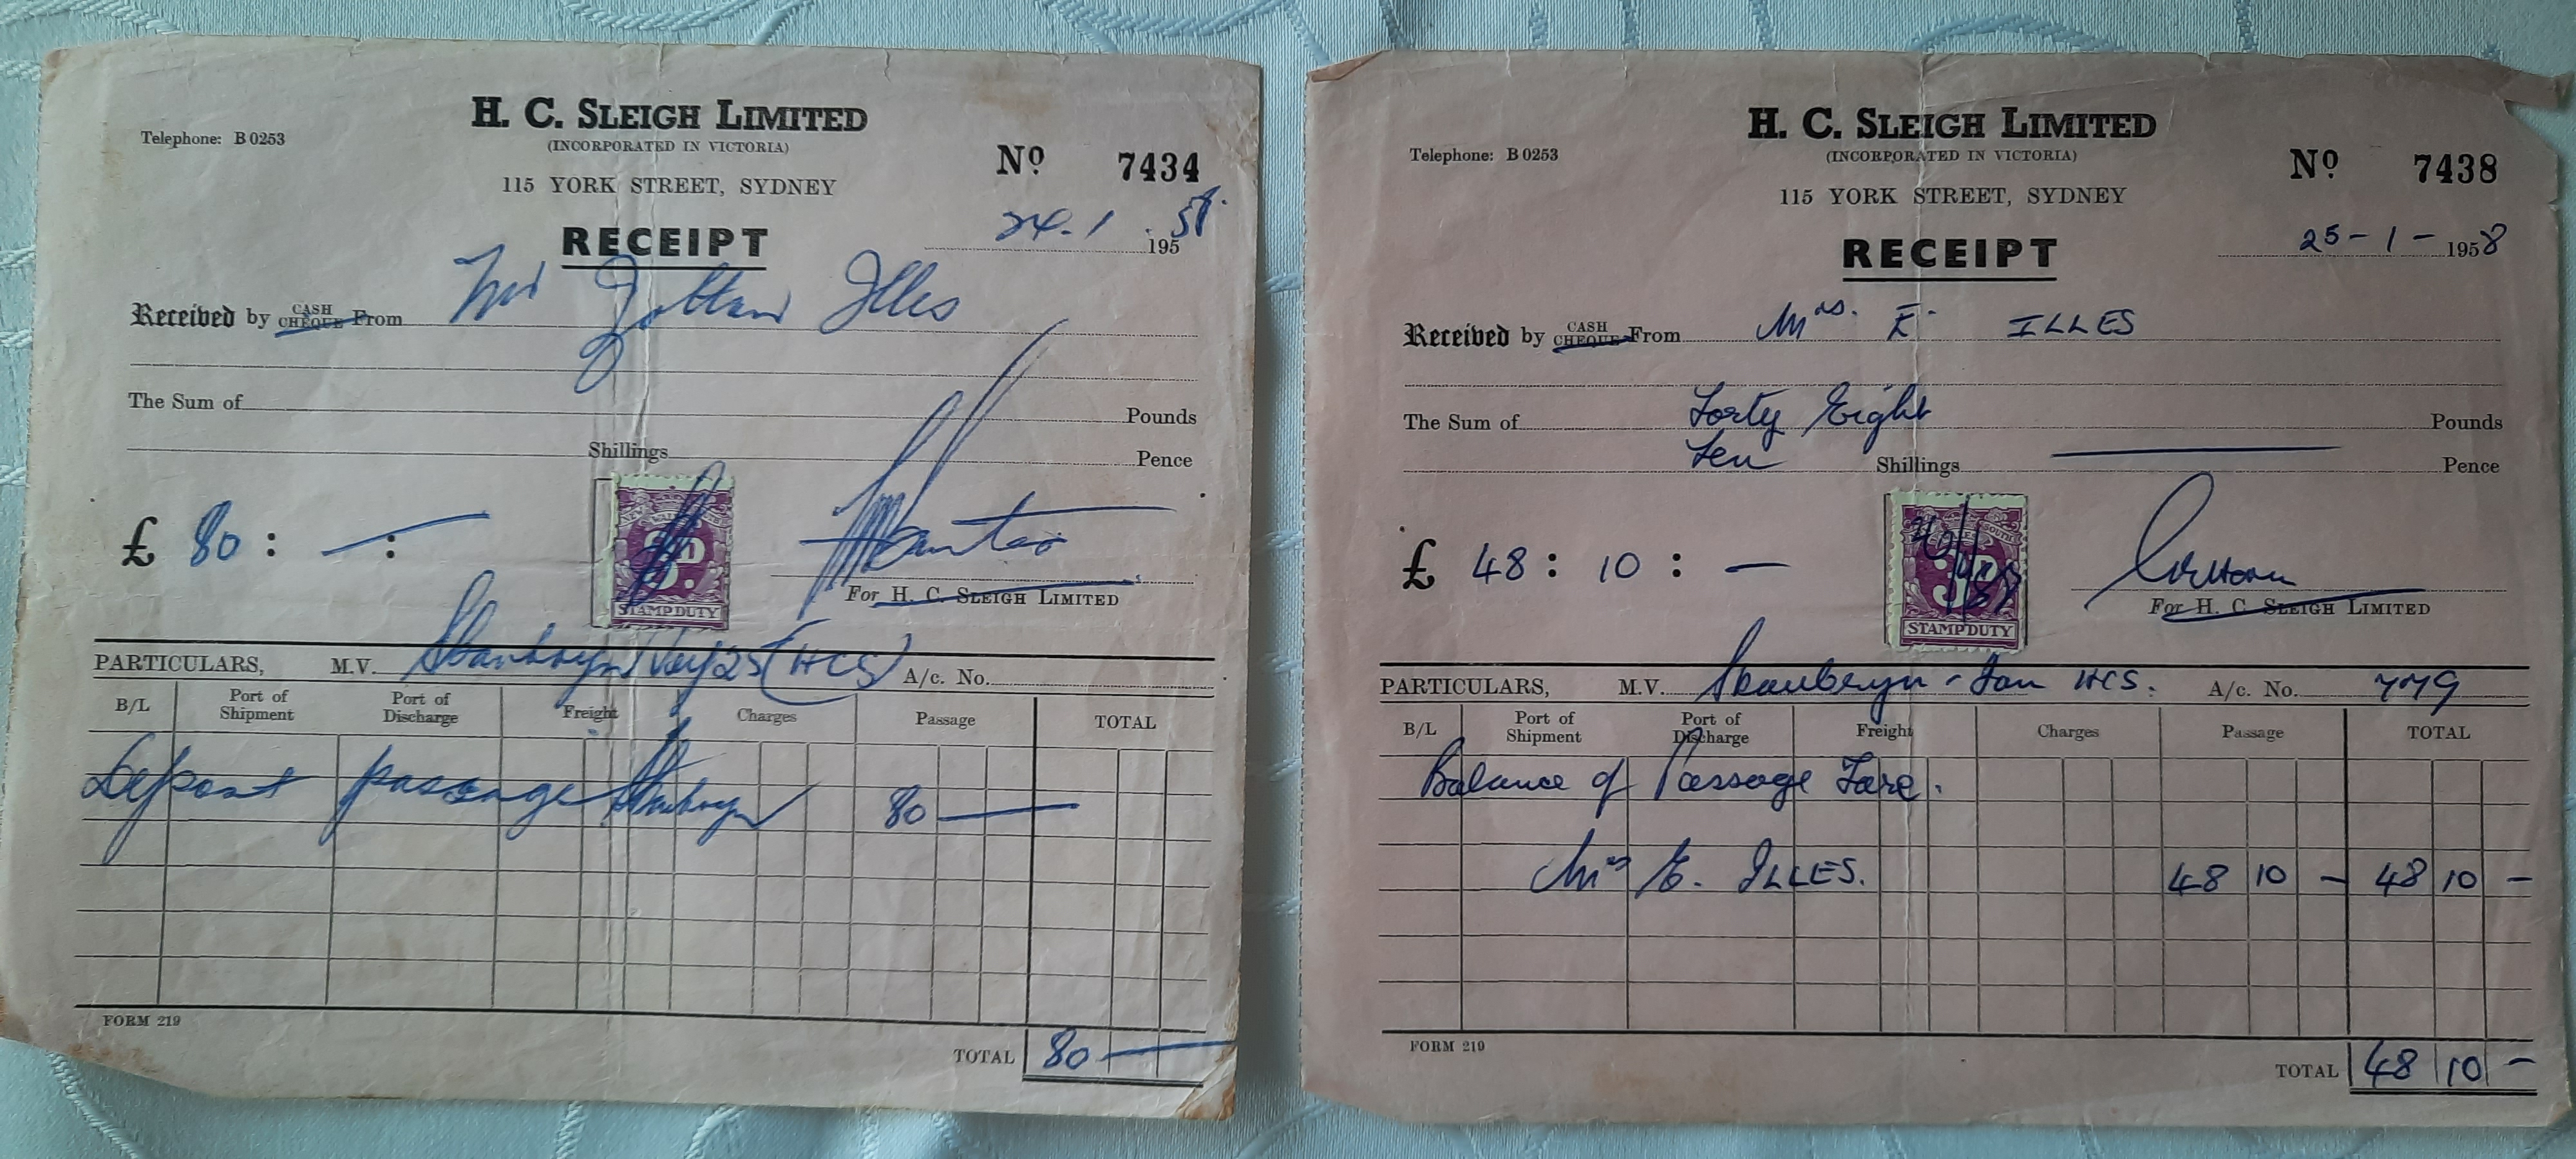 H. C. SLEIGH LIMITED
Telephone: B 0253
(INCORPORATED IN VICTORIA)
Nº 7434
115 YORK STREET, SYDNEY
24.1.58.
RECEIPT
195
Received by CASH CHEQUE From Zoltan Illes
The Sum of Pounds
Shillings Pence
£ 80 : — : —
3D.
STAMP DUTY
For H. C. SLEIGH LIMITED
PARTICULARS, M.V. Skaubryn Voy 25 (HCS) A/c. No.
B/L Port of Shipment Port of Discharge Freight Charges Passage TOTAL
Deposit passage Skaubryn 80 —
FORM 219
TOTAL 80 —
H. C. SLEIGH LIMITED
Telephone: B 0253
(INCORPORATED IN VICTORIA)
Nº 7438
115 YORK STREET, SYDNEY
RECEIPT
25-1-1958
Received by CASH CHEQUE From Mrs. E. ILLES
The Sum of Forty Eight Pounds
Ten Shillings — Pence
£ 48 : 10 : —
STAMP DUTY
For H. C. SLEIGH LIMITED
PARTICULARS, M.V. Skaubryn - Jan HCS. A/c. No. 779
B/L Port of Shipment Port of Discharge Freight Charges Passage TOTAL
Balance of Passage Fare.
Mrs E. ILLES. 48 10 — 48 10 —
FORM 219
TOTAL 48 10 —